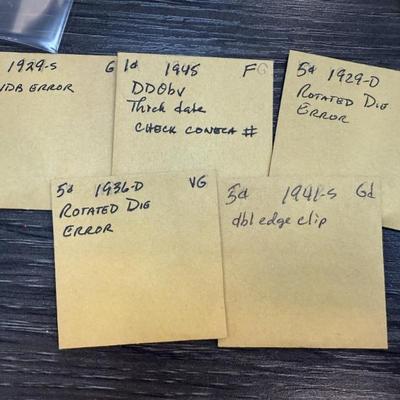 1929-S G
VDB ERROR
1¢ 1945 FG
DDObv
Thick date
CHECK CONECA #
5¢ 1929-D
ROTATED DIE
ERROR
5¢ 1936-D VG
ROTATED DIE
ERROR
5¢ 1941-S Gd
dbl edge clip